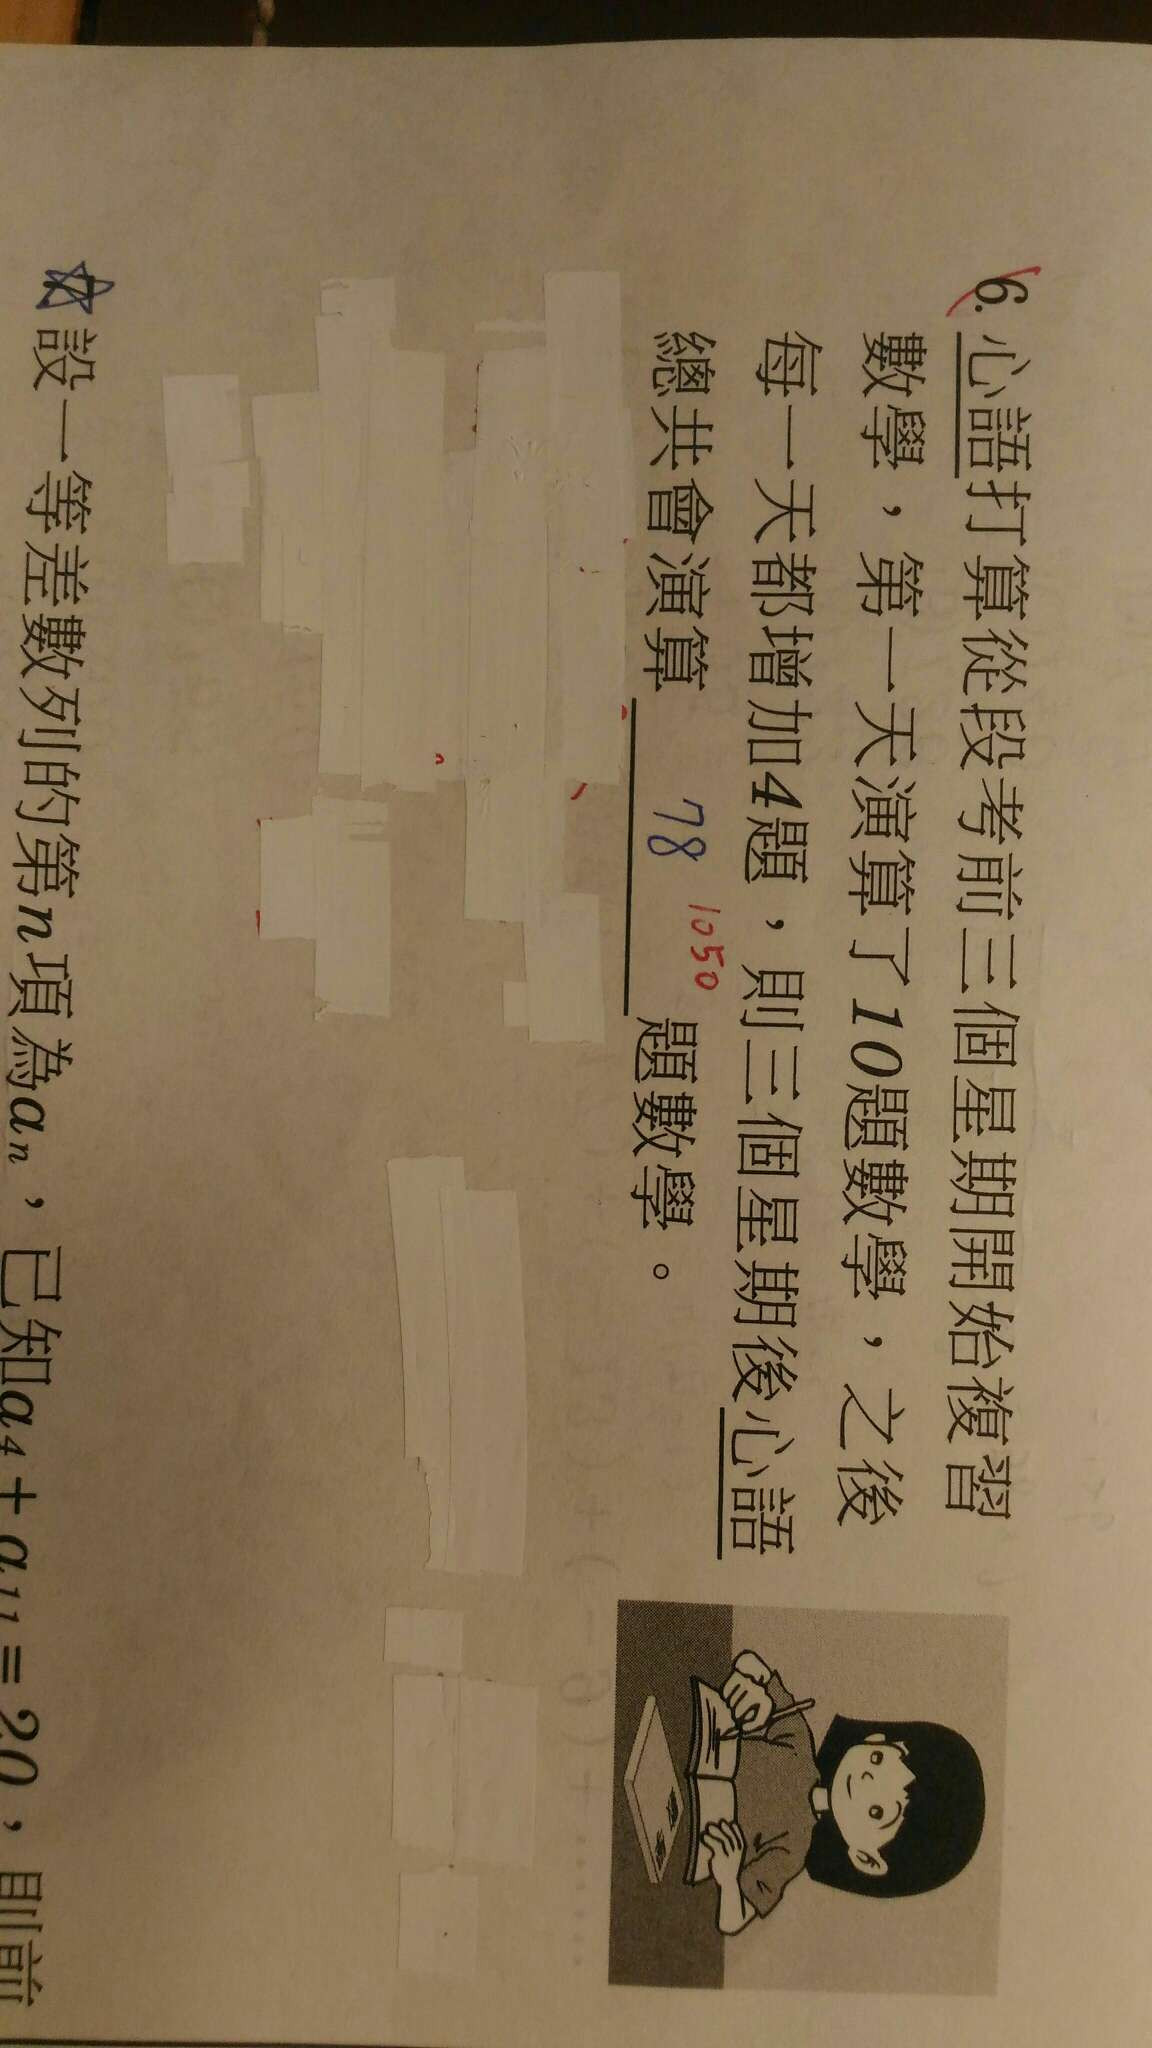 6. 心語打算從段考前三個星期開始複習
數學，第一天演算了10題數學，之後
每一天都增加4題，則三個星期後心語
總共會演算 78 1050 題數學。
設一等差數列的第n項為aₙ，已知a₄+a₁₁=20，則前